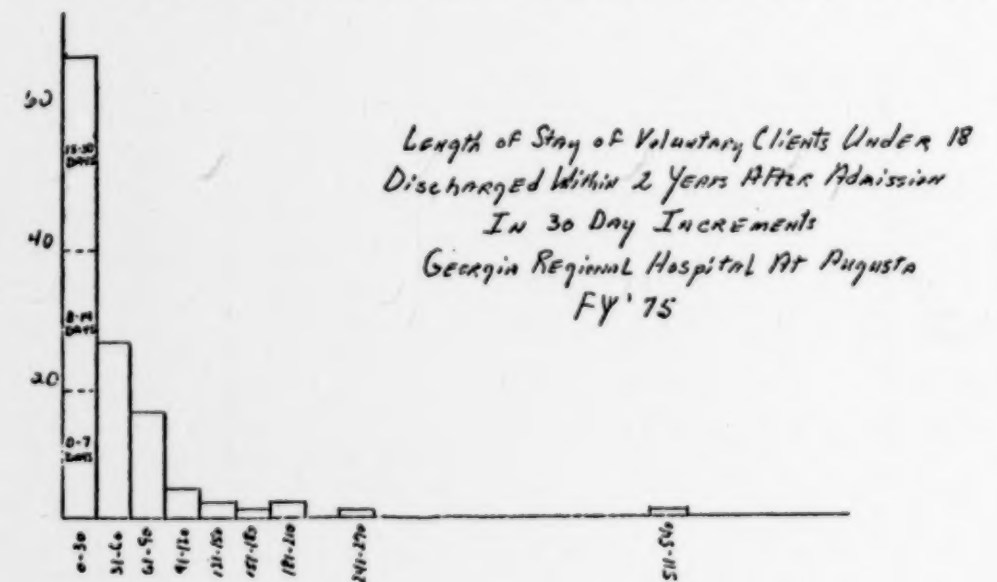 60
15-30
DAYS
Length of Stay of Voluntary Clients Under 18
Discharged Within 2 Years After Admission
In 30 Day Increments
Georgia Regional Hospital At Augusta
FY '75
40
8-14
DAYS
20
0-7
DAYS
0-30
31-60
61-90
91-120
121-150
151-180
181-210
241-270
511-540